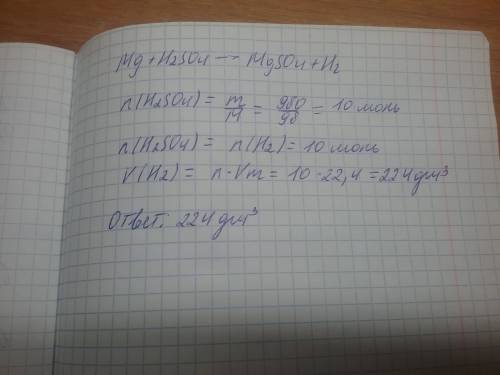 Mg + H2SO4 — MgSO4 + H2
n(H2SO4) = m/M = 980/98 = 10 моль
n(H2SO4) = n(H2) = 10 моль
V(H2) = n · Vm = 10 · 22,4 = 224 дм³
Ответ: 224 дм³